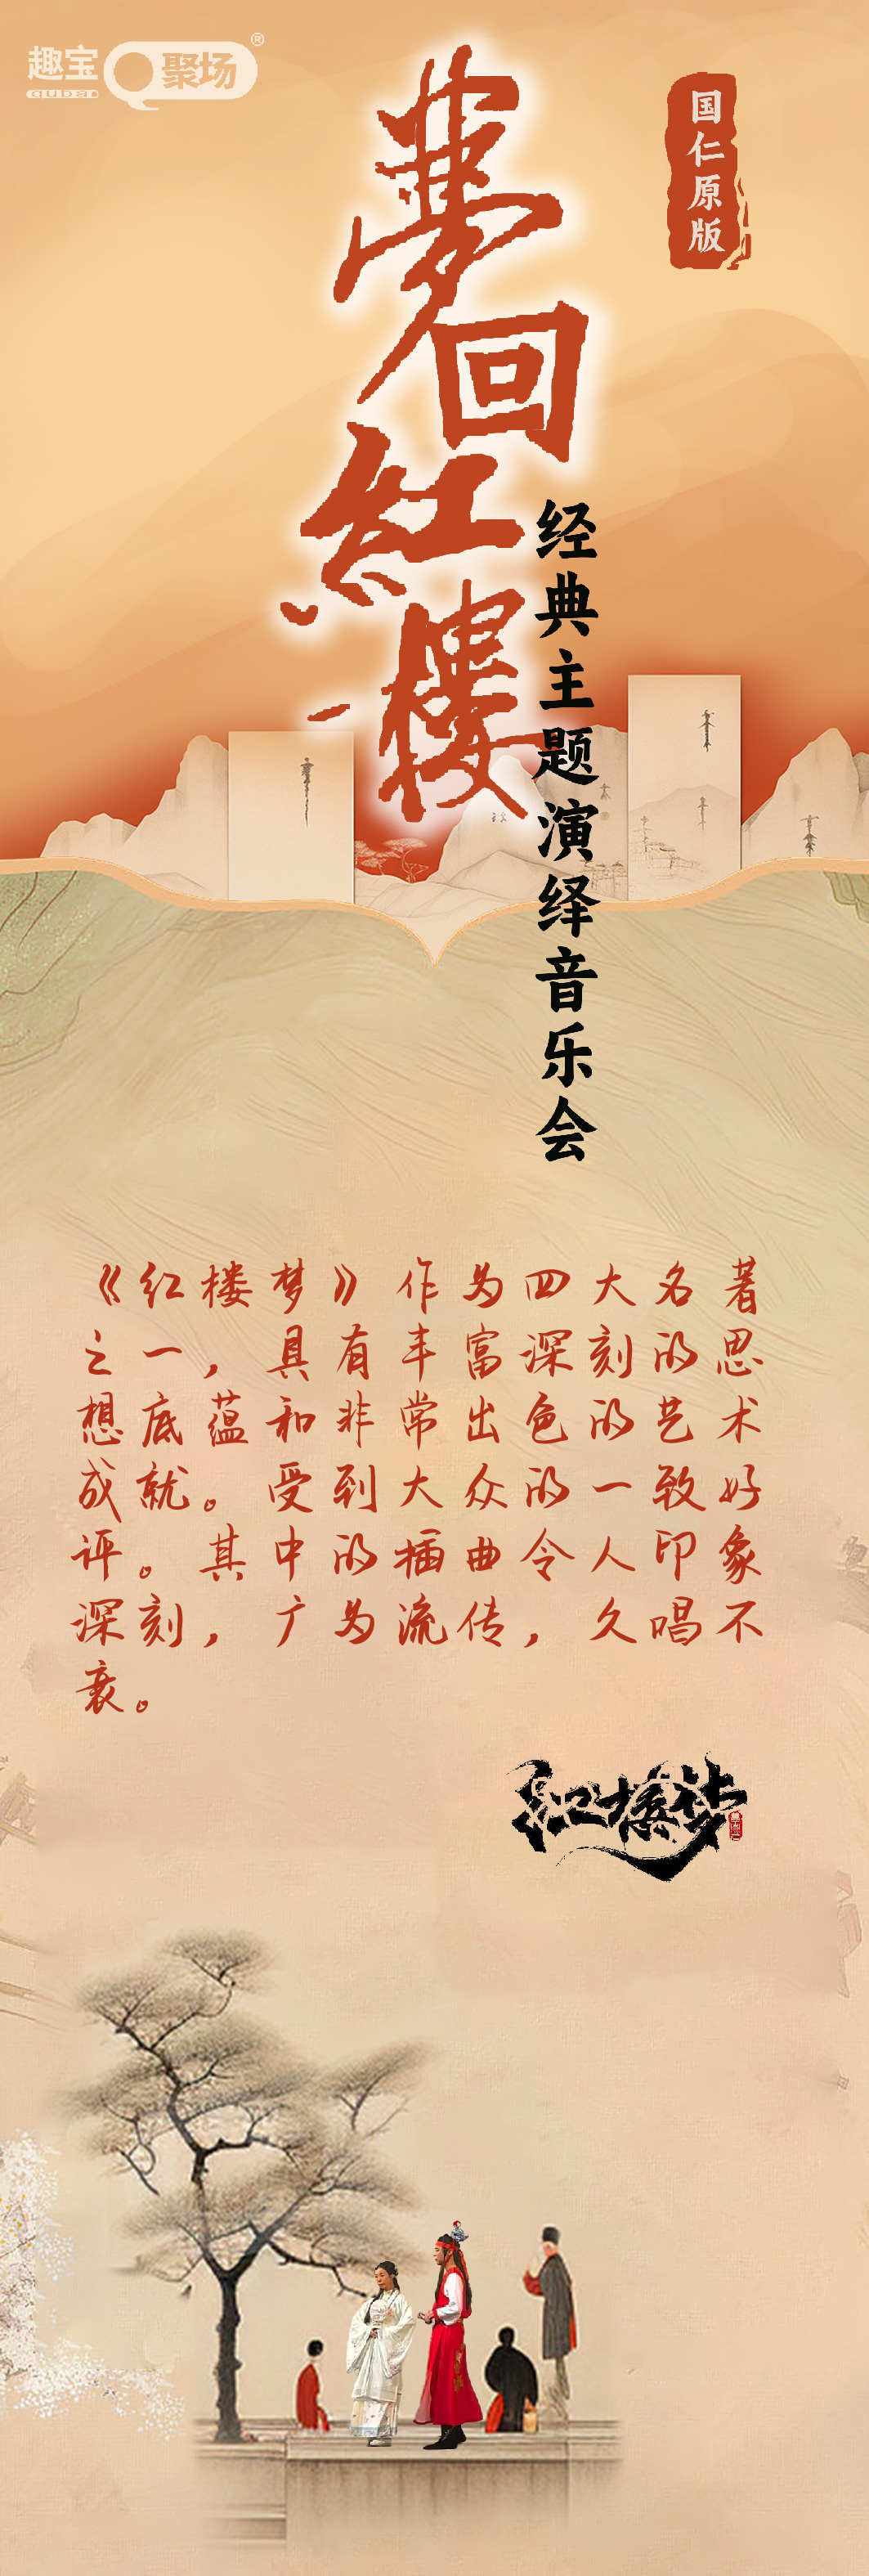 趣宝
QUBAO
聚场
®
国仁原版
夢回紅樓
经典主题演绎音乐会
《红楼梦》作为四大名著
之一，具有丰富深刻的思
想底蕴和非常出色的艺术
成就。受到大众的一致好
评。其中的插曲令人印象
深刻，广为流传，久唱不
衰。
红楼梦